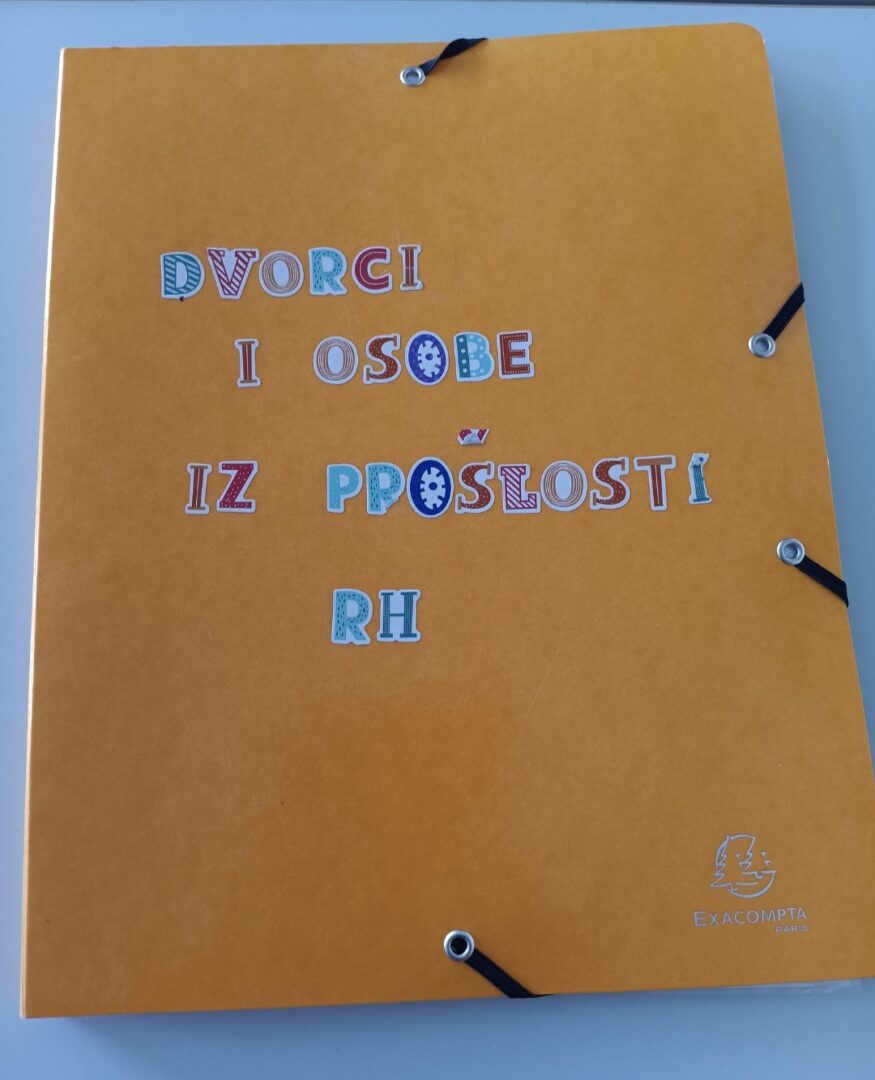 DVORCI
I OSOBE
IZ PROŠLOSTI
RH
EXACOMPTA
PARIS